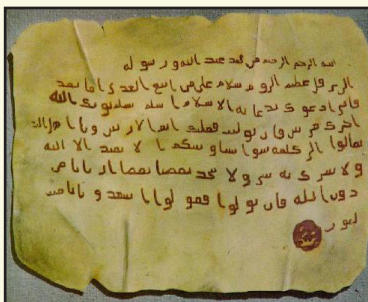 بسم الله الرحمن الرحيم من محمد عبد الله و رسو له
الى هرقل عظيم الروم سلام على من اتبع الهدى اما بعد
فانى ادعوك بدعاية الاسلام اسلم تسلم يوتك الله
اجرك مرتين فان توليت فعليك اثم الاريسين ويا اهل الكتب
تعالوا الى كلمة سوا بيننا وبينكم ا لا نعبد الا الله
ولا نشرك به شيا ولا يتخذ بعضنا بعضا اربابا من
دون الله فان تولوا فقولوا اشهدوا بانا مس
لمون